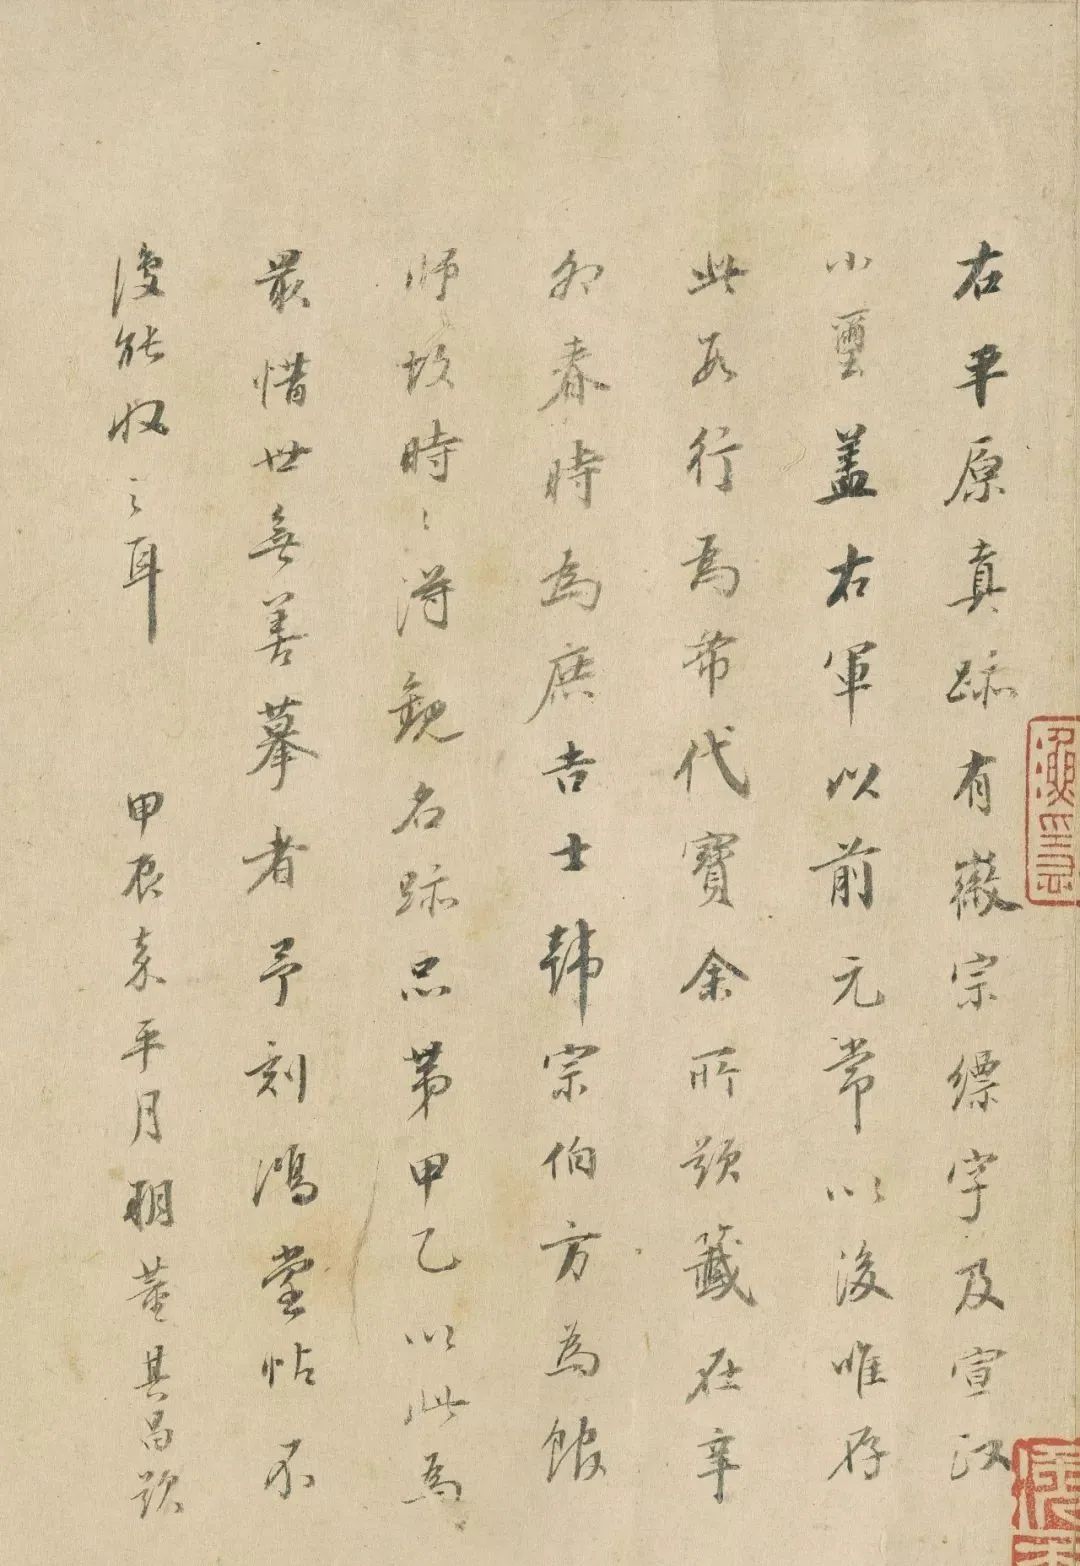 右平原真跡有徽宗縹字及宣政
小璽盖右軍以前元常以後唯存
此數行為希代寶余所題籤在辛
卯春時為庶吉士韓宗伯方為館
師故時〻得觀名跡品第甲乙以此為
最惜世無善摹者予刻鴻堂帖不
復能收之耳 甲辰嘉平月朔董其昌題